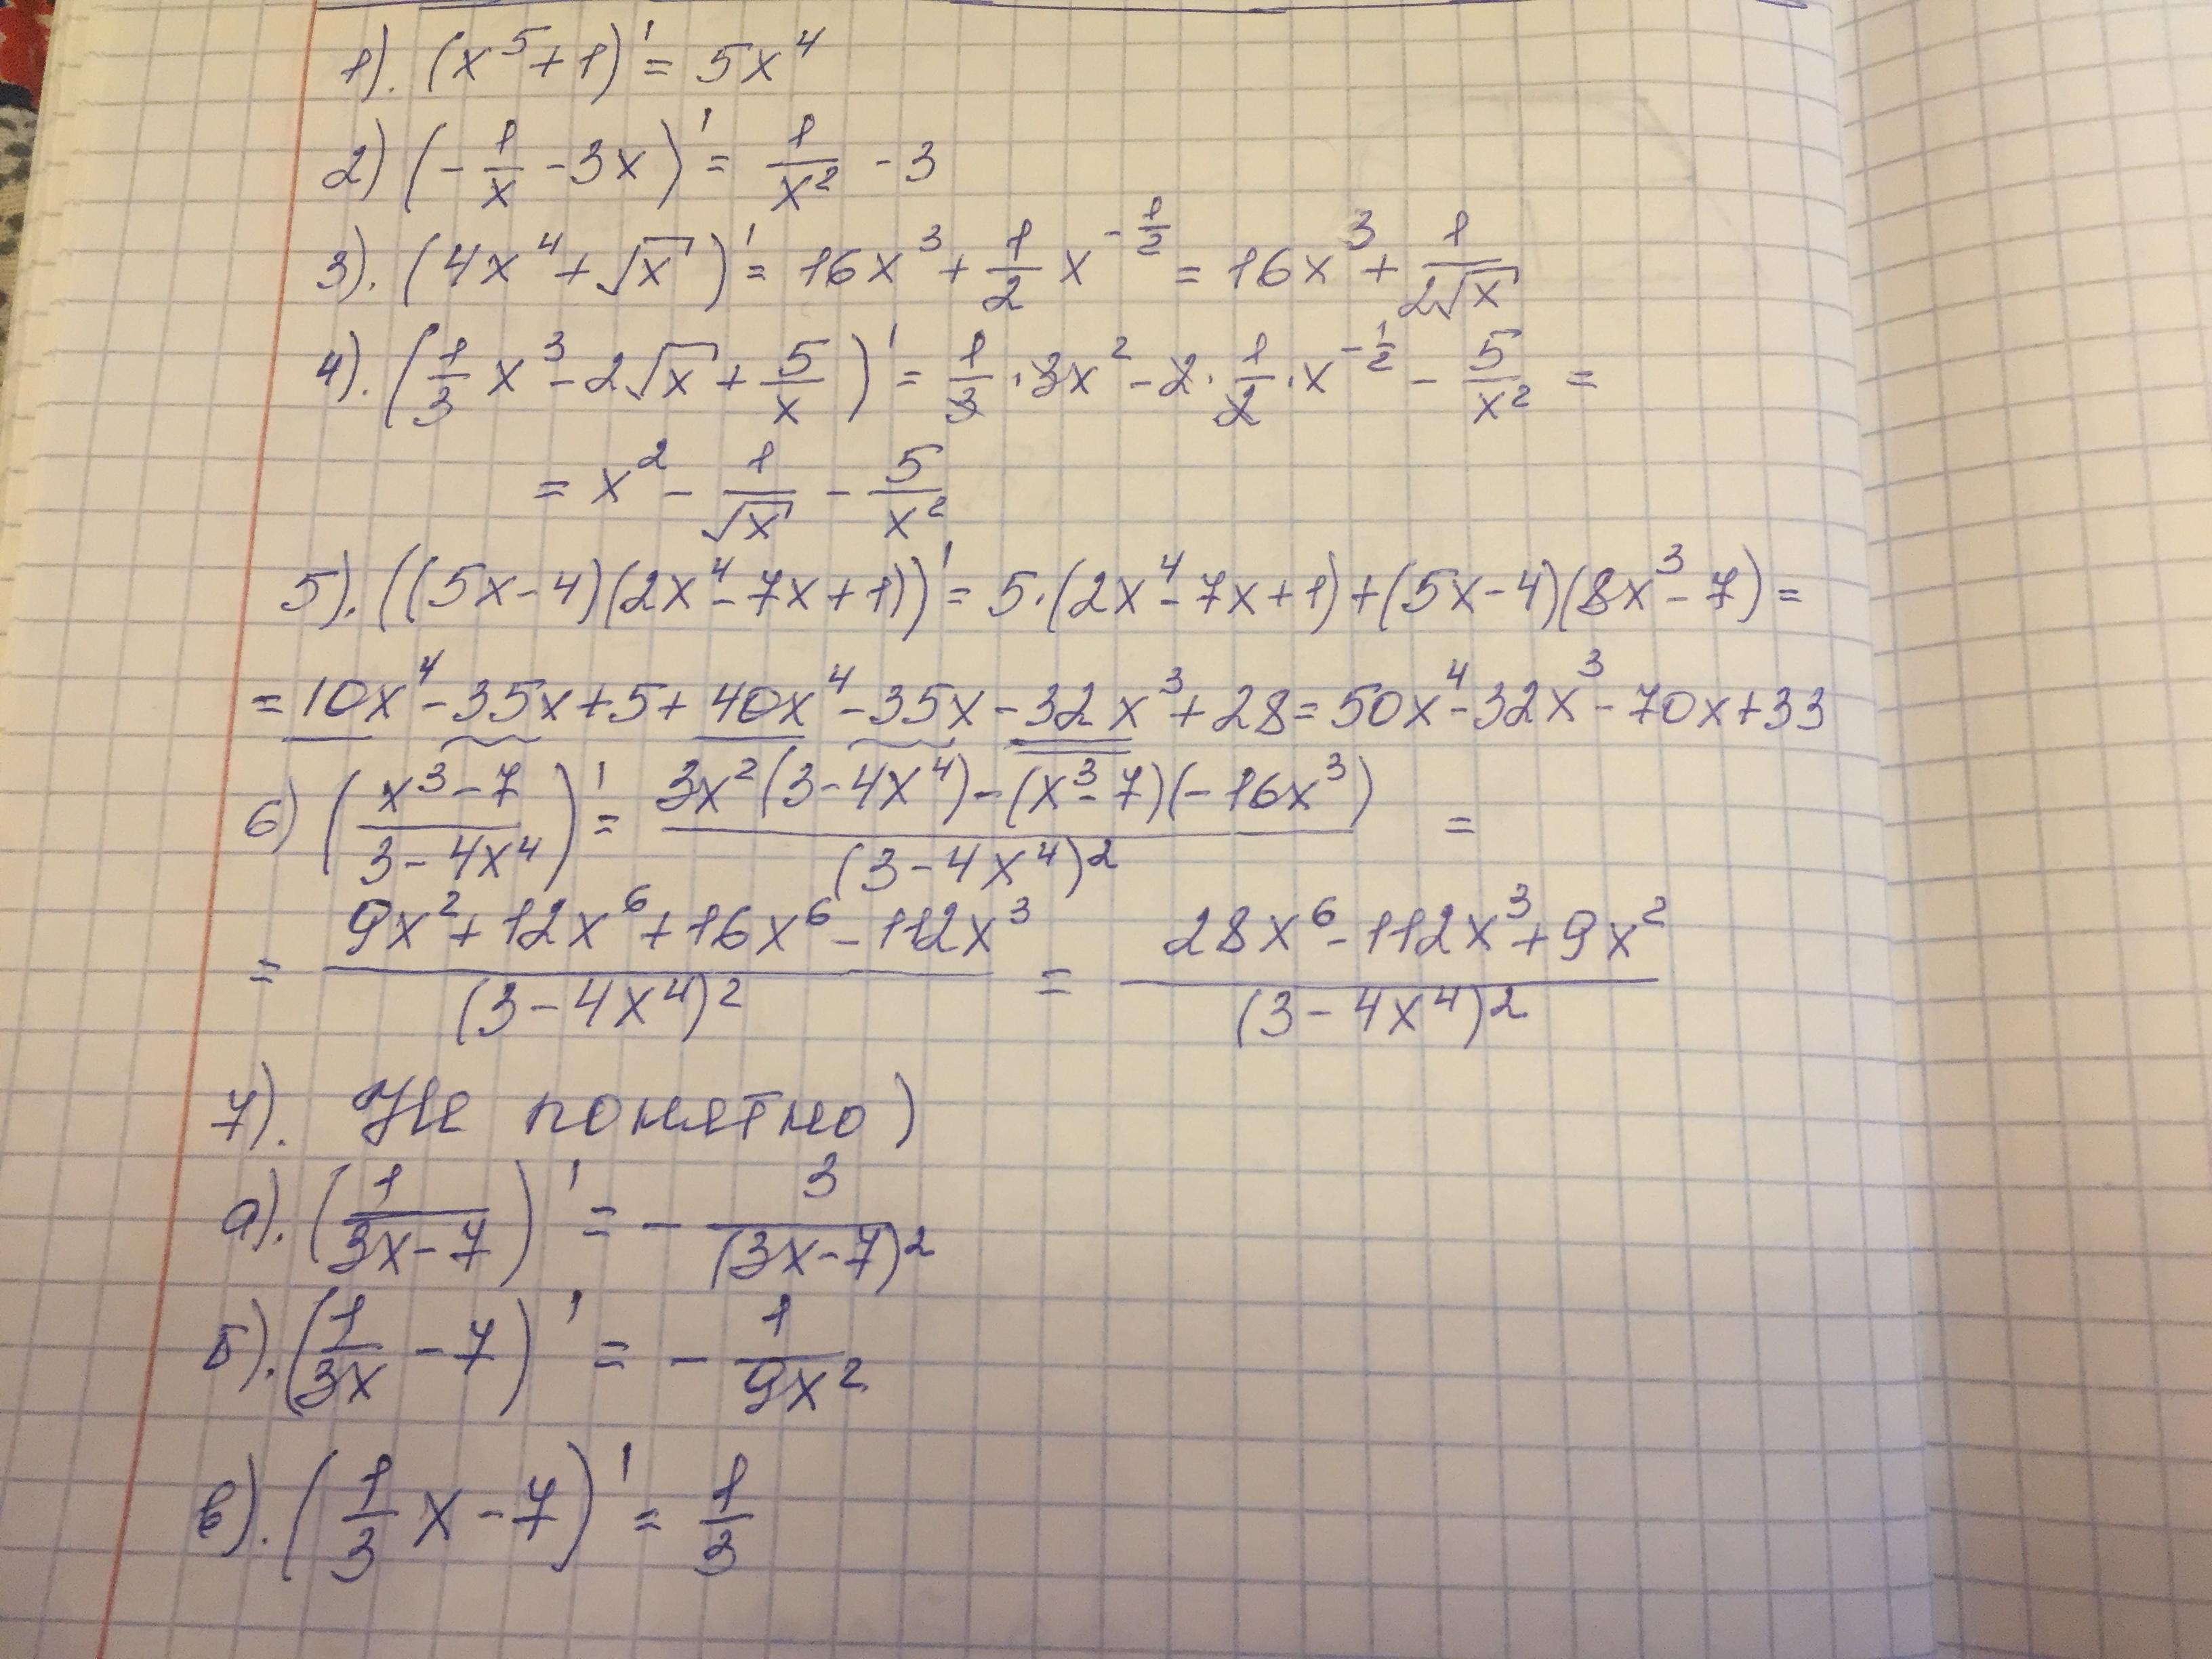 1). (x⁵+1)' = 5x⁴
2) (-1/x -3x)' = 1/x² -3
3). (4x⁴+√x)' = 16x³+1/2 x^(-1/2) = 16x³+1/(2√x)
4). (1/3 x³-2√x+5/x)' = 1/3·3x²-2·1/2·x^(-1/2) - 5/x² =
= x² - 1/√x - 5/x²
5). ((5x-4)(2x⁴-7x+1))' = 5·(2x⁴-7x+1)+(5x-4)(8x³-7) =
= 10x⁴-35x+5+40x⁴-35x-32x³+28=50x⁴-32x³-70x+33
6) ((x³-7)/(3-4x⁴))' = (3x²(3-4x⁴)-(x³-7)(-16x³))/(3-4x⁴)² =
= (9x²+12x⁶+16x⁶-112x³)/(3-4x⁴)² = (28x⁶-112x³+9x²)/(3-4x⁴)²
7). Не понятно)
а). (1/(3x-7))' = - 3/(3x-7)²
б). (1/(3x) -7)' = - 1/(9x²)
в). (1/3 x-7)' = 1/3